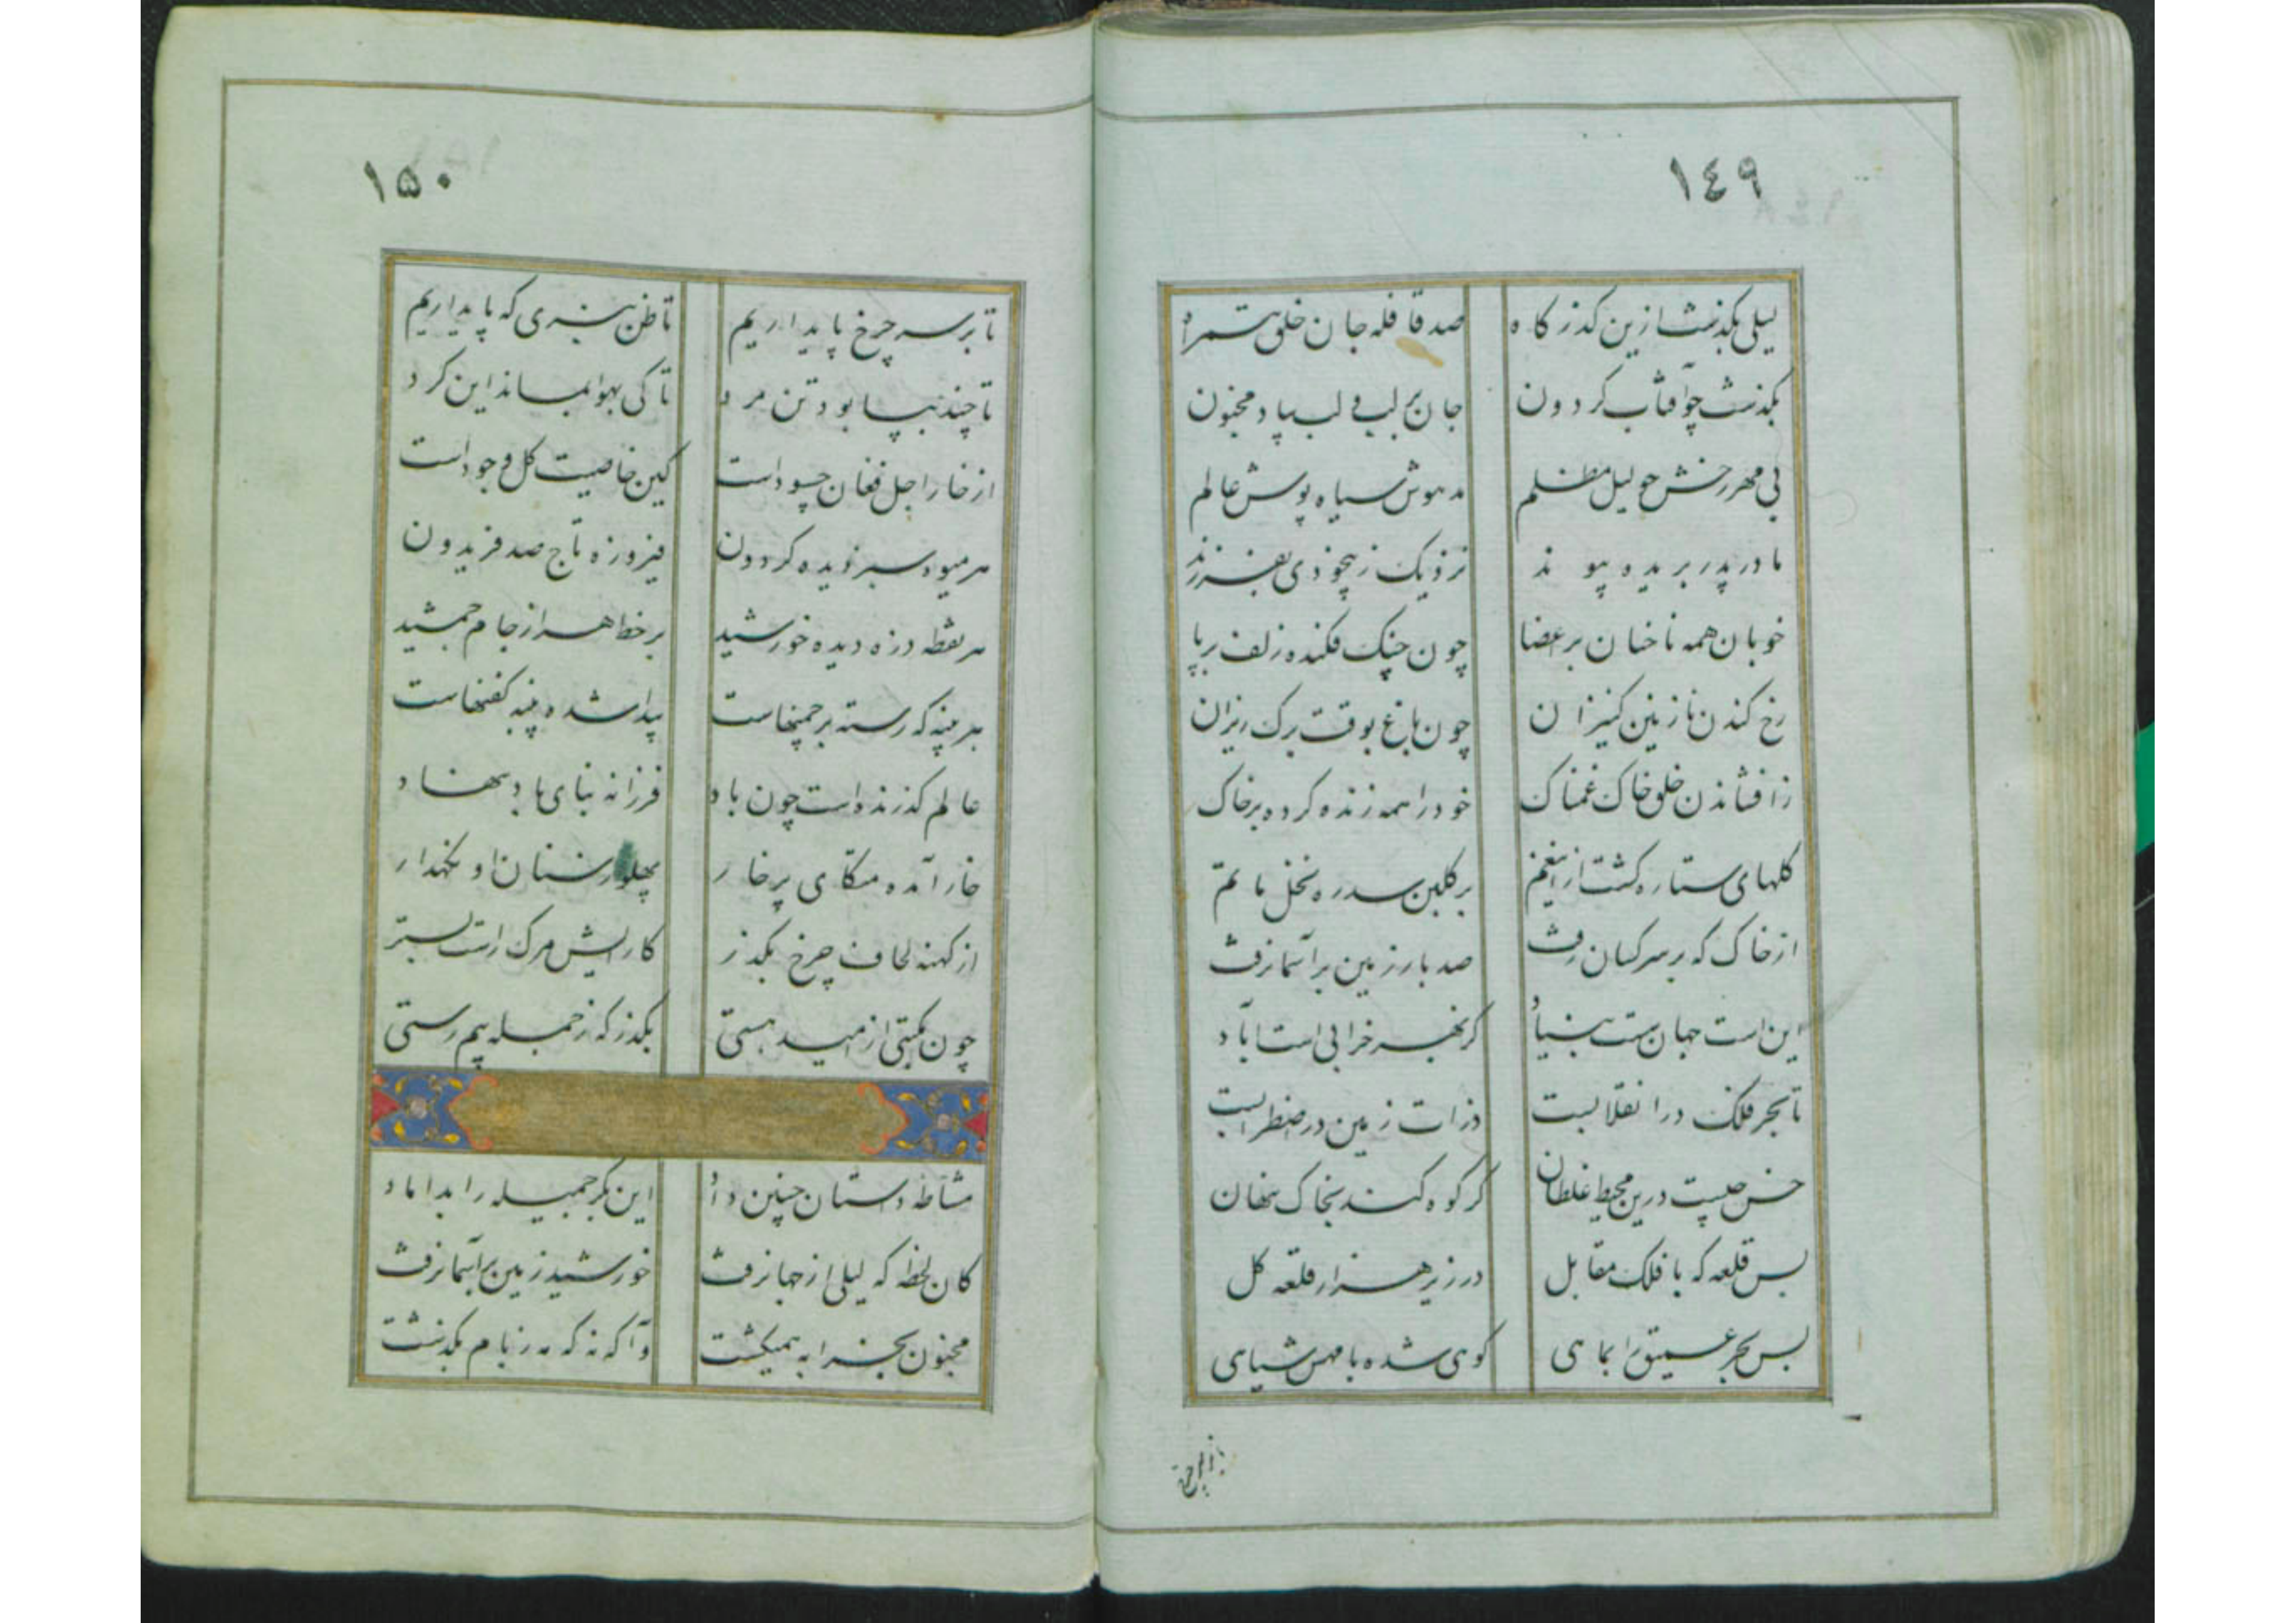 ١٤٩
لیلی بگذشت ازین گذرگاه صد قافله جان خلق همراه
بگذشت چو آفتاب گردون جان بر لب و لب بیاد مجنون
بی مهر رخش چو لیل مظلم مدهوش سیاه پوش عالم
مادر پدر بریده پیوند نزدیک ز بیخودی بفرزند
خوبان همه ناخنان بر اعضا چون چنک فکنده زلف برپا
رخ کندن نازنین کنیزان چون باغ بوقت برک ریزان
زافشاندن خلق خاک غمناک خود را همه زنده کرده بر خاک
کلهای ستاره کشت ازین غم بر کلبن سدره نخل ماتم
از خاک که بر سر کسان رفت صد بار زمین بر آسمان رفت
این است جهان سست بنیاد کز بهر خرابی است آباد
تا بحر فلک در انقلابست ذرات زمین در اضطرابست
خس چیست درین محیط غلطان کز کوه کند بخاک پنهان
بس قلعه که با فلک مقابل در زیر هزار قلعه کل
بس بحر عمیق را بماهی کوی شده با همین سیاهی
١٥٠
تا بر سر چرخ پا بداریم تا ظن نبری که پایداریم
تا چند بپا بود تن مرد تا کی بهوا بماند این کرد
از خار اجل فغان چه سود است کین خاصیت کل وجود است
هر میوه سبز دیده کردون فیروزه تاج صد فریدون
هر نقطه ذره دیده خورشید بر خط هزار جام جمشید
هر پنبه که رسته بر چمنهاست پیدا شده پنبه کفنهاست
عالم گذرنده است چون باد فرزانه بنای باد ننهاد
خار آمده متکای پر خار پهلو ز سنان او نکهدار
از کهنه لحاف چرخ بگذر کارایش مرک است بستر
چون بگسستی از امید هستی بگذر که ز جمله بیم رستی
مشاطه داستان چنین داد این بکر جمیله را بداماد
کان لحظه که لیلی از جهان رفت خورشید زمین بر آسمان رفت
مجنون بخرابه همیکشت وآگه نه که مه ز بام بگذشت